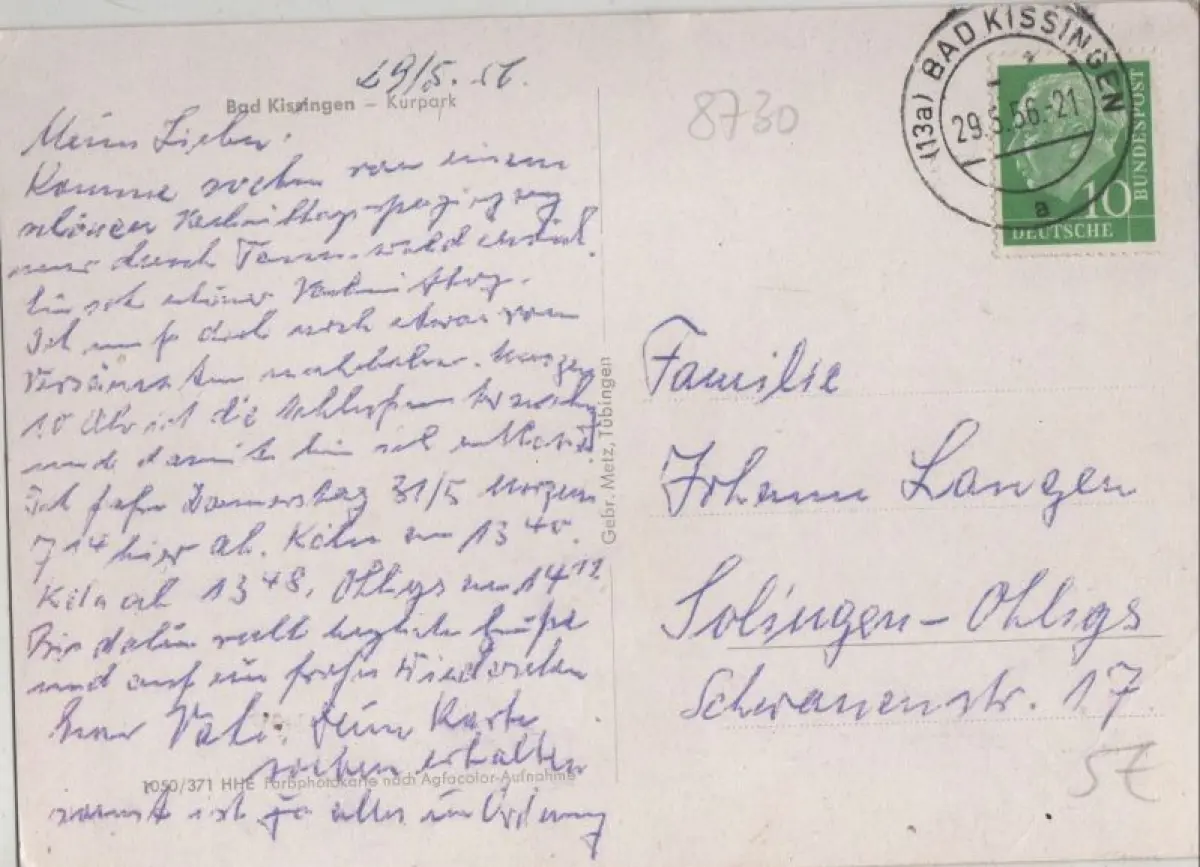 29/5.56.
Bad Kissingen – Kurpark
Meine Lieben!
Komme soeben von einem
schönen Nachmittagsspaziergang
durch Tannenwald zurück.
schöner Nachmittag.
Ich muß doch noch etwas vom
Versäumten nachholen. Morgen
10 Uhr ist die Schlußuntersuchung
und damit bin ich entlassen.
Ich fahre Donnerstag 31/5 Morgen
7 14 hier ab. Köln an 13 40.
Köln ab 13 48, Ohligs an 14 12
Bis dahin recht herzliche Grüße
und auf ein frohes Wiedersehen
Euer Vati. Deine Karte
soeben erhalten
sonst ist ja alles in Ordnung
1050/371 HHE Farbphotokarte nach Agfacolor-Aufnahme
Gebr. Metz, Tübingen
8730
(13a) BAD KISSINGEN
29.5.56.-21
a
10
DEUTSCHE
BUNDESPOST
Familie
Johann Langen
Solingen-Ohligs
Schwanenstr. 17.